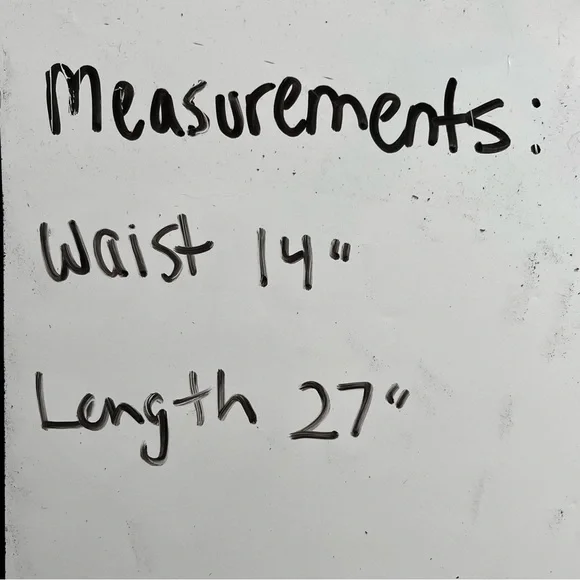 Measurements:
Waist 14"
Length 27"